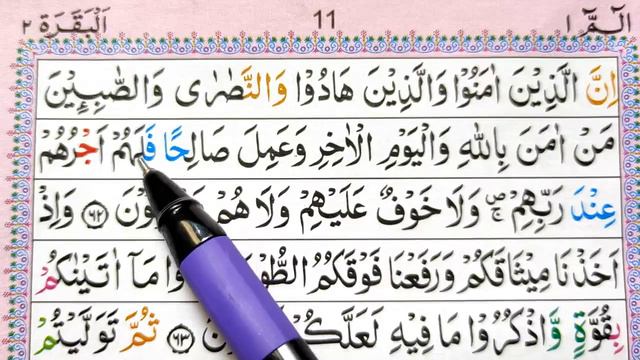 الٓمّٓ ١ 11 اَلْبَقَرَة ٢
اِنَّ الَّذِيْنَ اٰمَنُوْا وَالَّذِيْنَ هَادُوْا وَالنَّصٰرٰى وَالصّٰبِـِٕيْنَ
مَنْ اٰمَنَ بِاللّٰهِ وَالْيَوْمِ الْاٰخِرِ وَعَمِلَ صَالِحًا فَلَهُمْ اَجْرُهُمْ
عِنْدَ رَبِّهِمْ ۚ وَلَا خَوْفٌ عَلَيْهِمْ وَلَا هُمْ ۝٦٢ وَاِذْ
اَخَذْنَا مِيْثَاقَكُمْ وَرَفَعْنَا فَوْقَكُمُ مَآ اٰتَيْنٰكُمْ
بِقُوَّةٍ وَّاذْكُرُوْا مَا فِيْهِ ۝٦٣ ثُمَّ تَوَلَّيْتُمْ